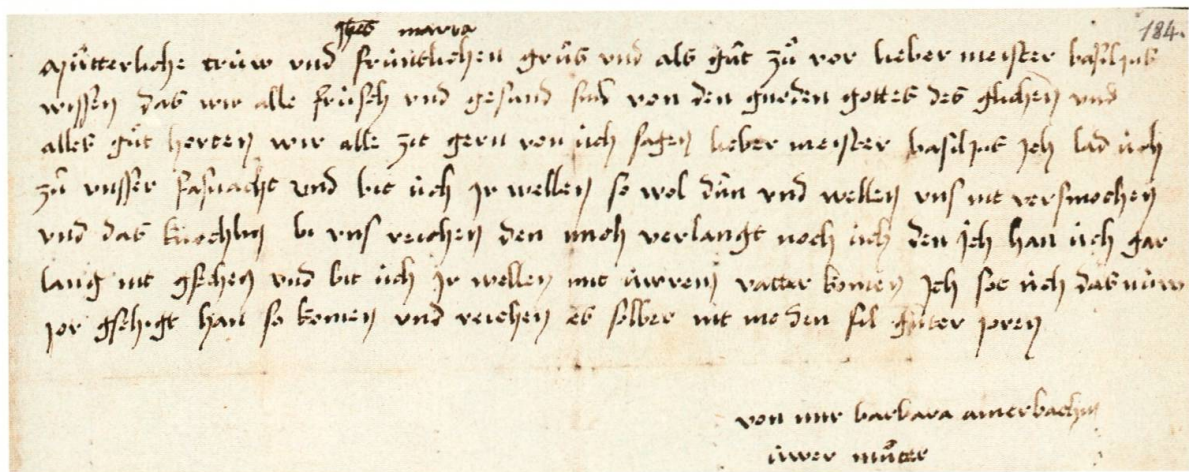 jhes maria
184.
Mütterliche trüw vnd früntlichen grůs vnd als gůt zů vor lieber meister basilius
wissen das wir alle früsch vnd gesund sind von den gnoden gottes des glichen vnd
alles gůt horten wir alle zit gern von üch sagen lieber meister basilius jch lad üch
zů vnsser fasnacht vnd bit üch jr wellen so wol důn vnd wellen vns nit versmochen
vnd das kuochlin bi vns reichen den mich verlangt noch üch den jch han üch gar
lang nit gsehen vnd bit üch jr wellen mit üwrem vatter komen jch sot üch das nüw
jor gschigt han so komen vnd reichen es selber nit me den fil gůter joren
von mir barbara amerbachin
üwer můter